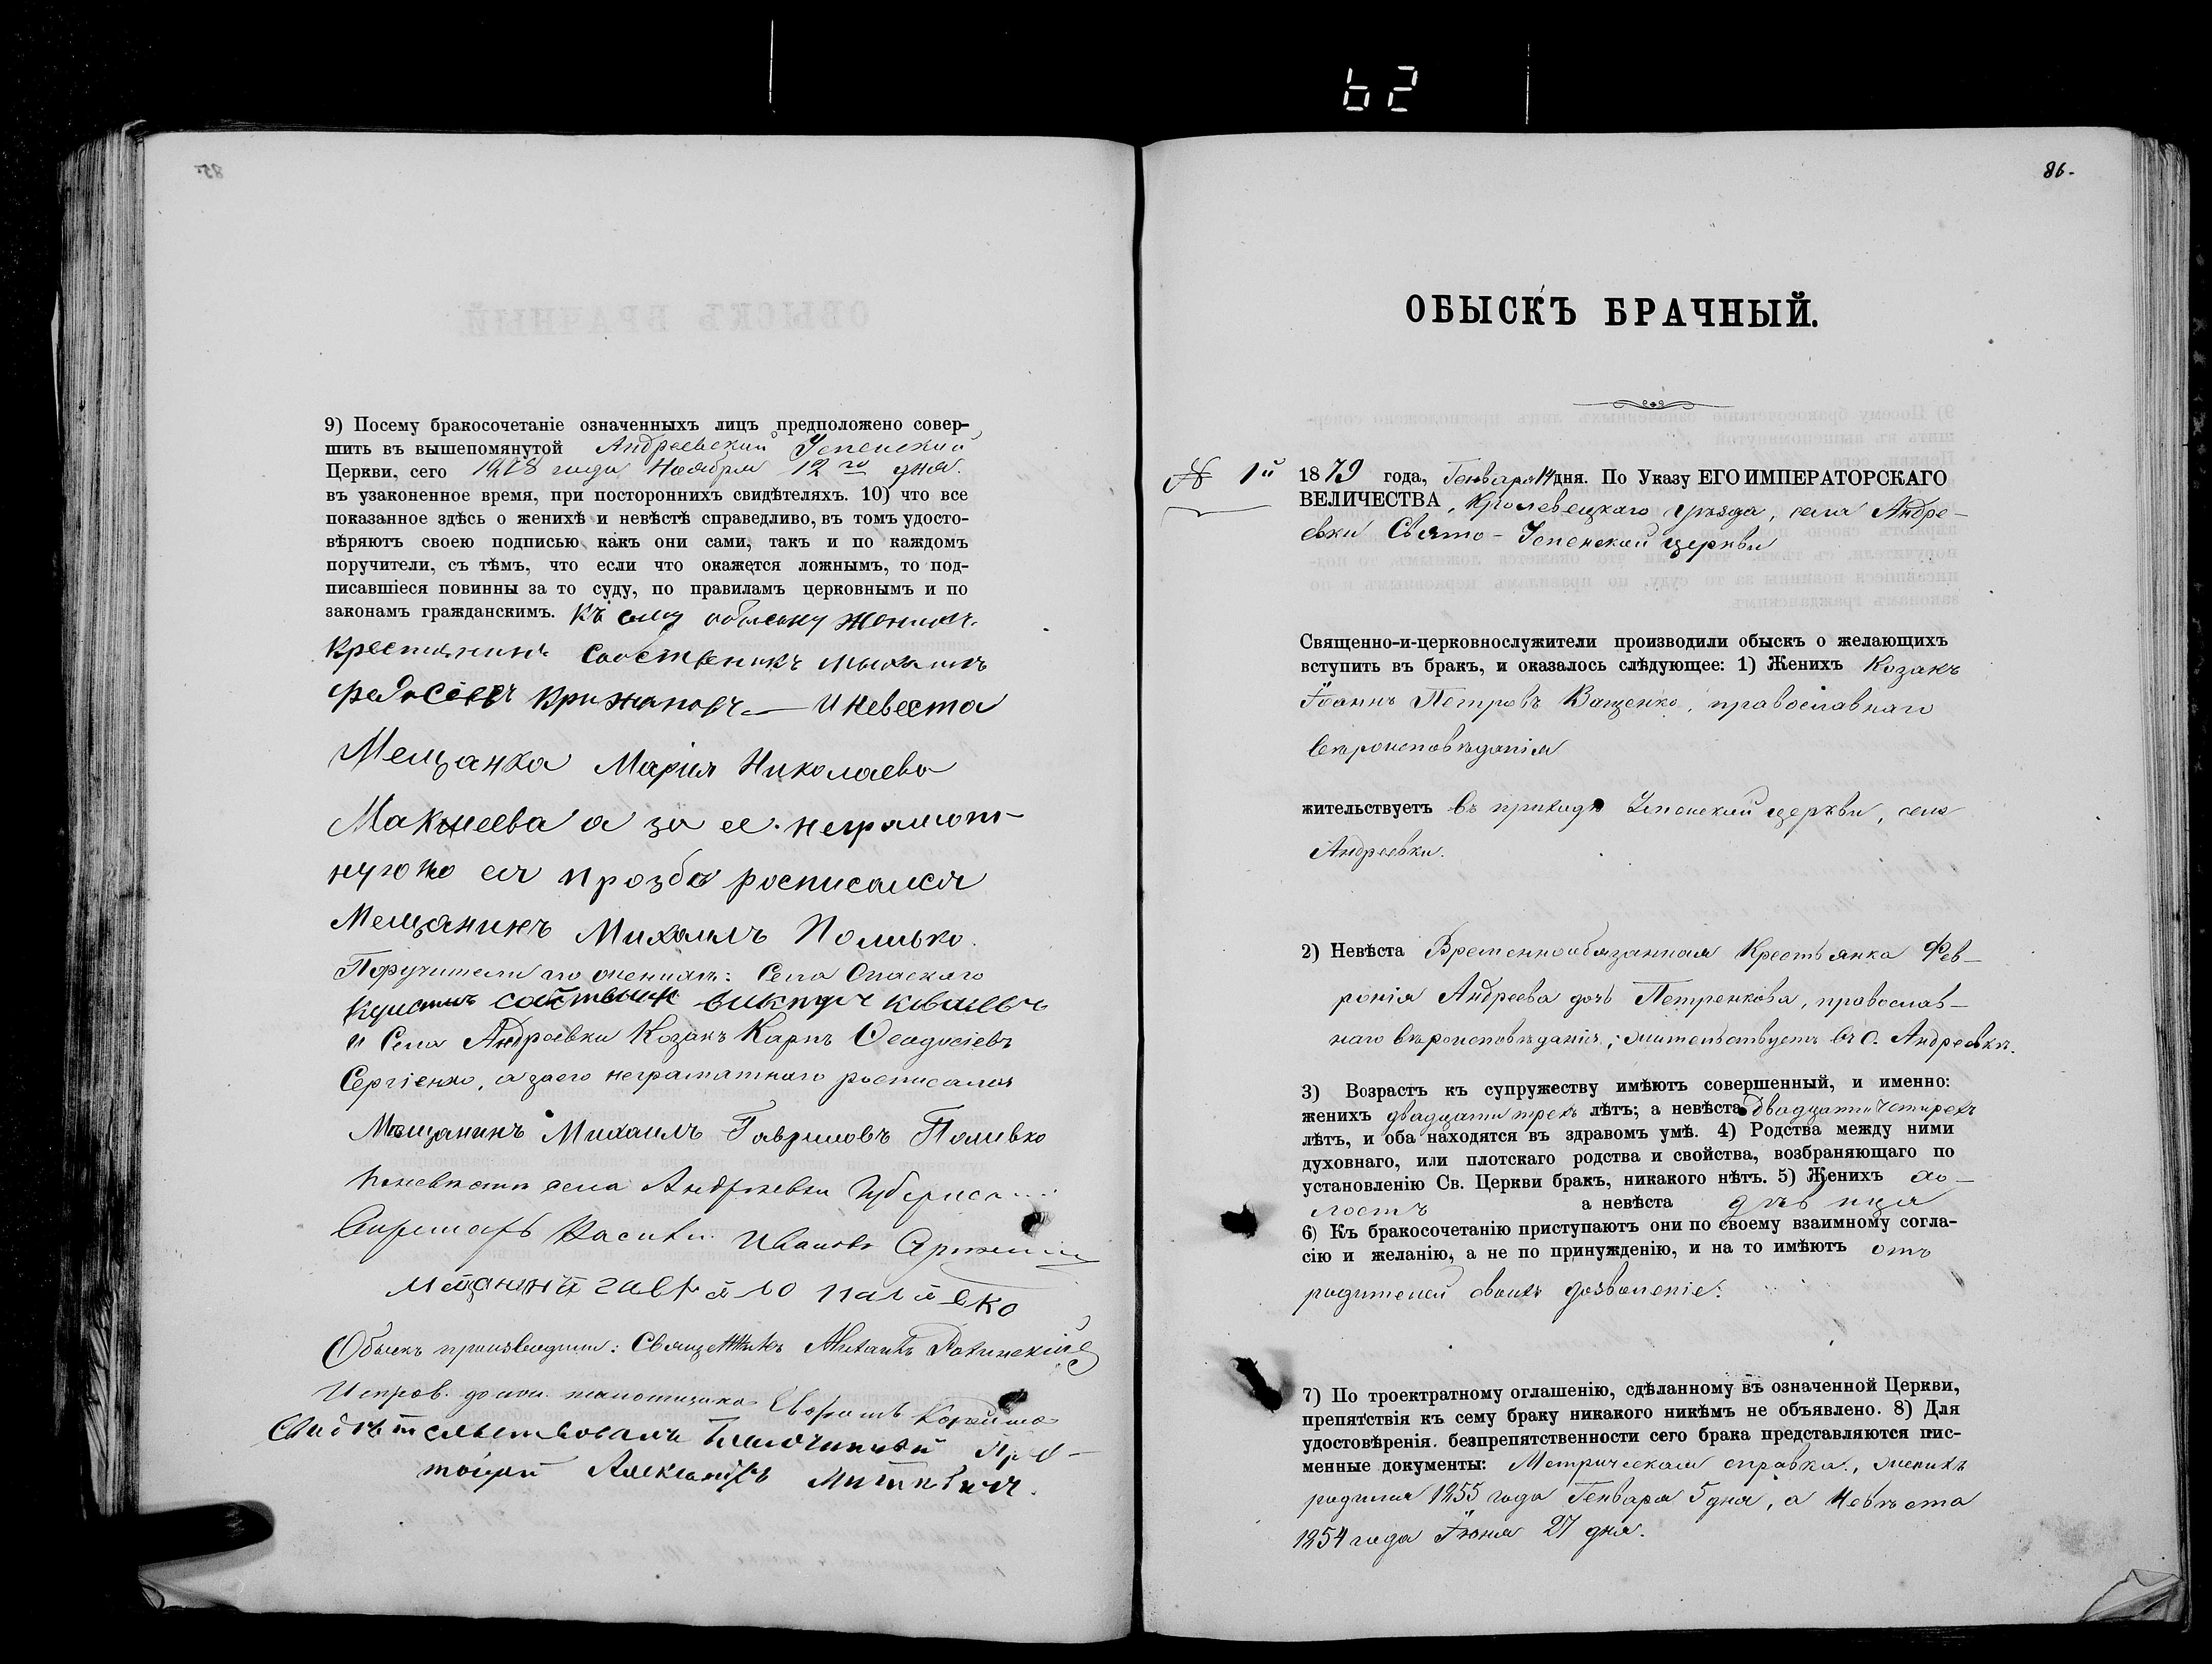 62
86.
9) Посему бракосочетаніе означенныхъ лицъ предположено совер-
шить въ вышепомянутой Андреевской Успенской
Церкви, сего 1878 года Ноября 12го дня.
въ узаконенное время, при постороннихъ свидѣтеляхъ. 10) что все
показанное здѣсь о женихѣ и невѣстѣ справедливо, въ томъ удосто-
вѣряютъ своею подписью какъ они сами, такъ и по каждомъ
поручители, съ тѣмъ, что если что окажется ложнымъ, то под-
писавшіеся повинны за то суду, по правиламъ церковнымъ и по
законамъ гражданскимъ. Къ сему обыску жених
Крестянинъ
и невеста
Мещанка Мария Николаева
Макеева а за ее неграмот-
ную по ея прозбе росписался
Мещанинъ Михаилъ Поливко.
Поручители по женихъ: Села Спаскаго
и Села Андреевки Козакъ Карпъ Феодосіевъ
Сергіенко, а за его неграматнаго росписался
Мещанинъ Михаилъ Гавриловъ Поливко
По невѣсти села Андреевки
Иванов
Обыскъ производили: Священникъ
Свидѣтельствовалъ Благочинный Про-
тоіерей Александръ
ОБЫСКЪ БРАЧНЫЙ.
№ 1й
1879 года, Генваря 14 дня. По Указу ЕГО ИМПЕРАТОРСКАГО
ВЕЛИЧЕСТВА, Кролевецкаго уѣзда, села Андре-
евки Свято-Успенской церкви
Священно-и-церковнослужители производили обыскъ о желающихъ
вступить въ бракъ, и оказалось слѣдующее: 1) Женихъ Козакъ
Іоаннъ Петровъ Ващенко, православнаго
вѣроисповѣданія
жительствуетъ въ приходѣ Успенской церкви, села
Андреевки.
2) Невѣста Временнообязанная Крестьянка Фев-
ронія Андреева дочь Петренкова, православ-
наго вѣроисповѣданія; жительствуетъ въ с. Андреевкѣ.
3) Возрастъ къ супружеству имѣютъ совершенный, и именно:
женихъ двадцати трехъ лѣтъ; а невѣста двадцати четирехъ
лѣтъ, и оба находятся въ здравомъ умѣ. 4) Родства между ними
духовнаго, или плотскаго родства и свойства, возбраняющаго по
установленію Св. Церкви бракъ, никакого нѣтъ. 5) Женихъ хо-
лостъ а невѣста дѣвица
6) Къ бракосочетанію приступаютъ они по своему взаимному согла-
сію и желанію, а не по принужденію, и на то имѣютъ отъ
родителей своихъ дозволеніе.
7) По троектратному оглашенію, сдѣланному въ означенной Церкви,
препятствія къ сему браку никакого никѣмъ не объявлено. 8) Для
удостовѣренія безпрепятственности сего брака представляются пис-
менные документы: Метрическая справка, женихъ
родился 1855 года Генваря 5 дня, а невѣста
1854 года Іюня 27 дня.